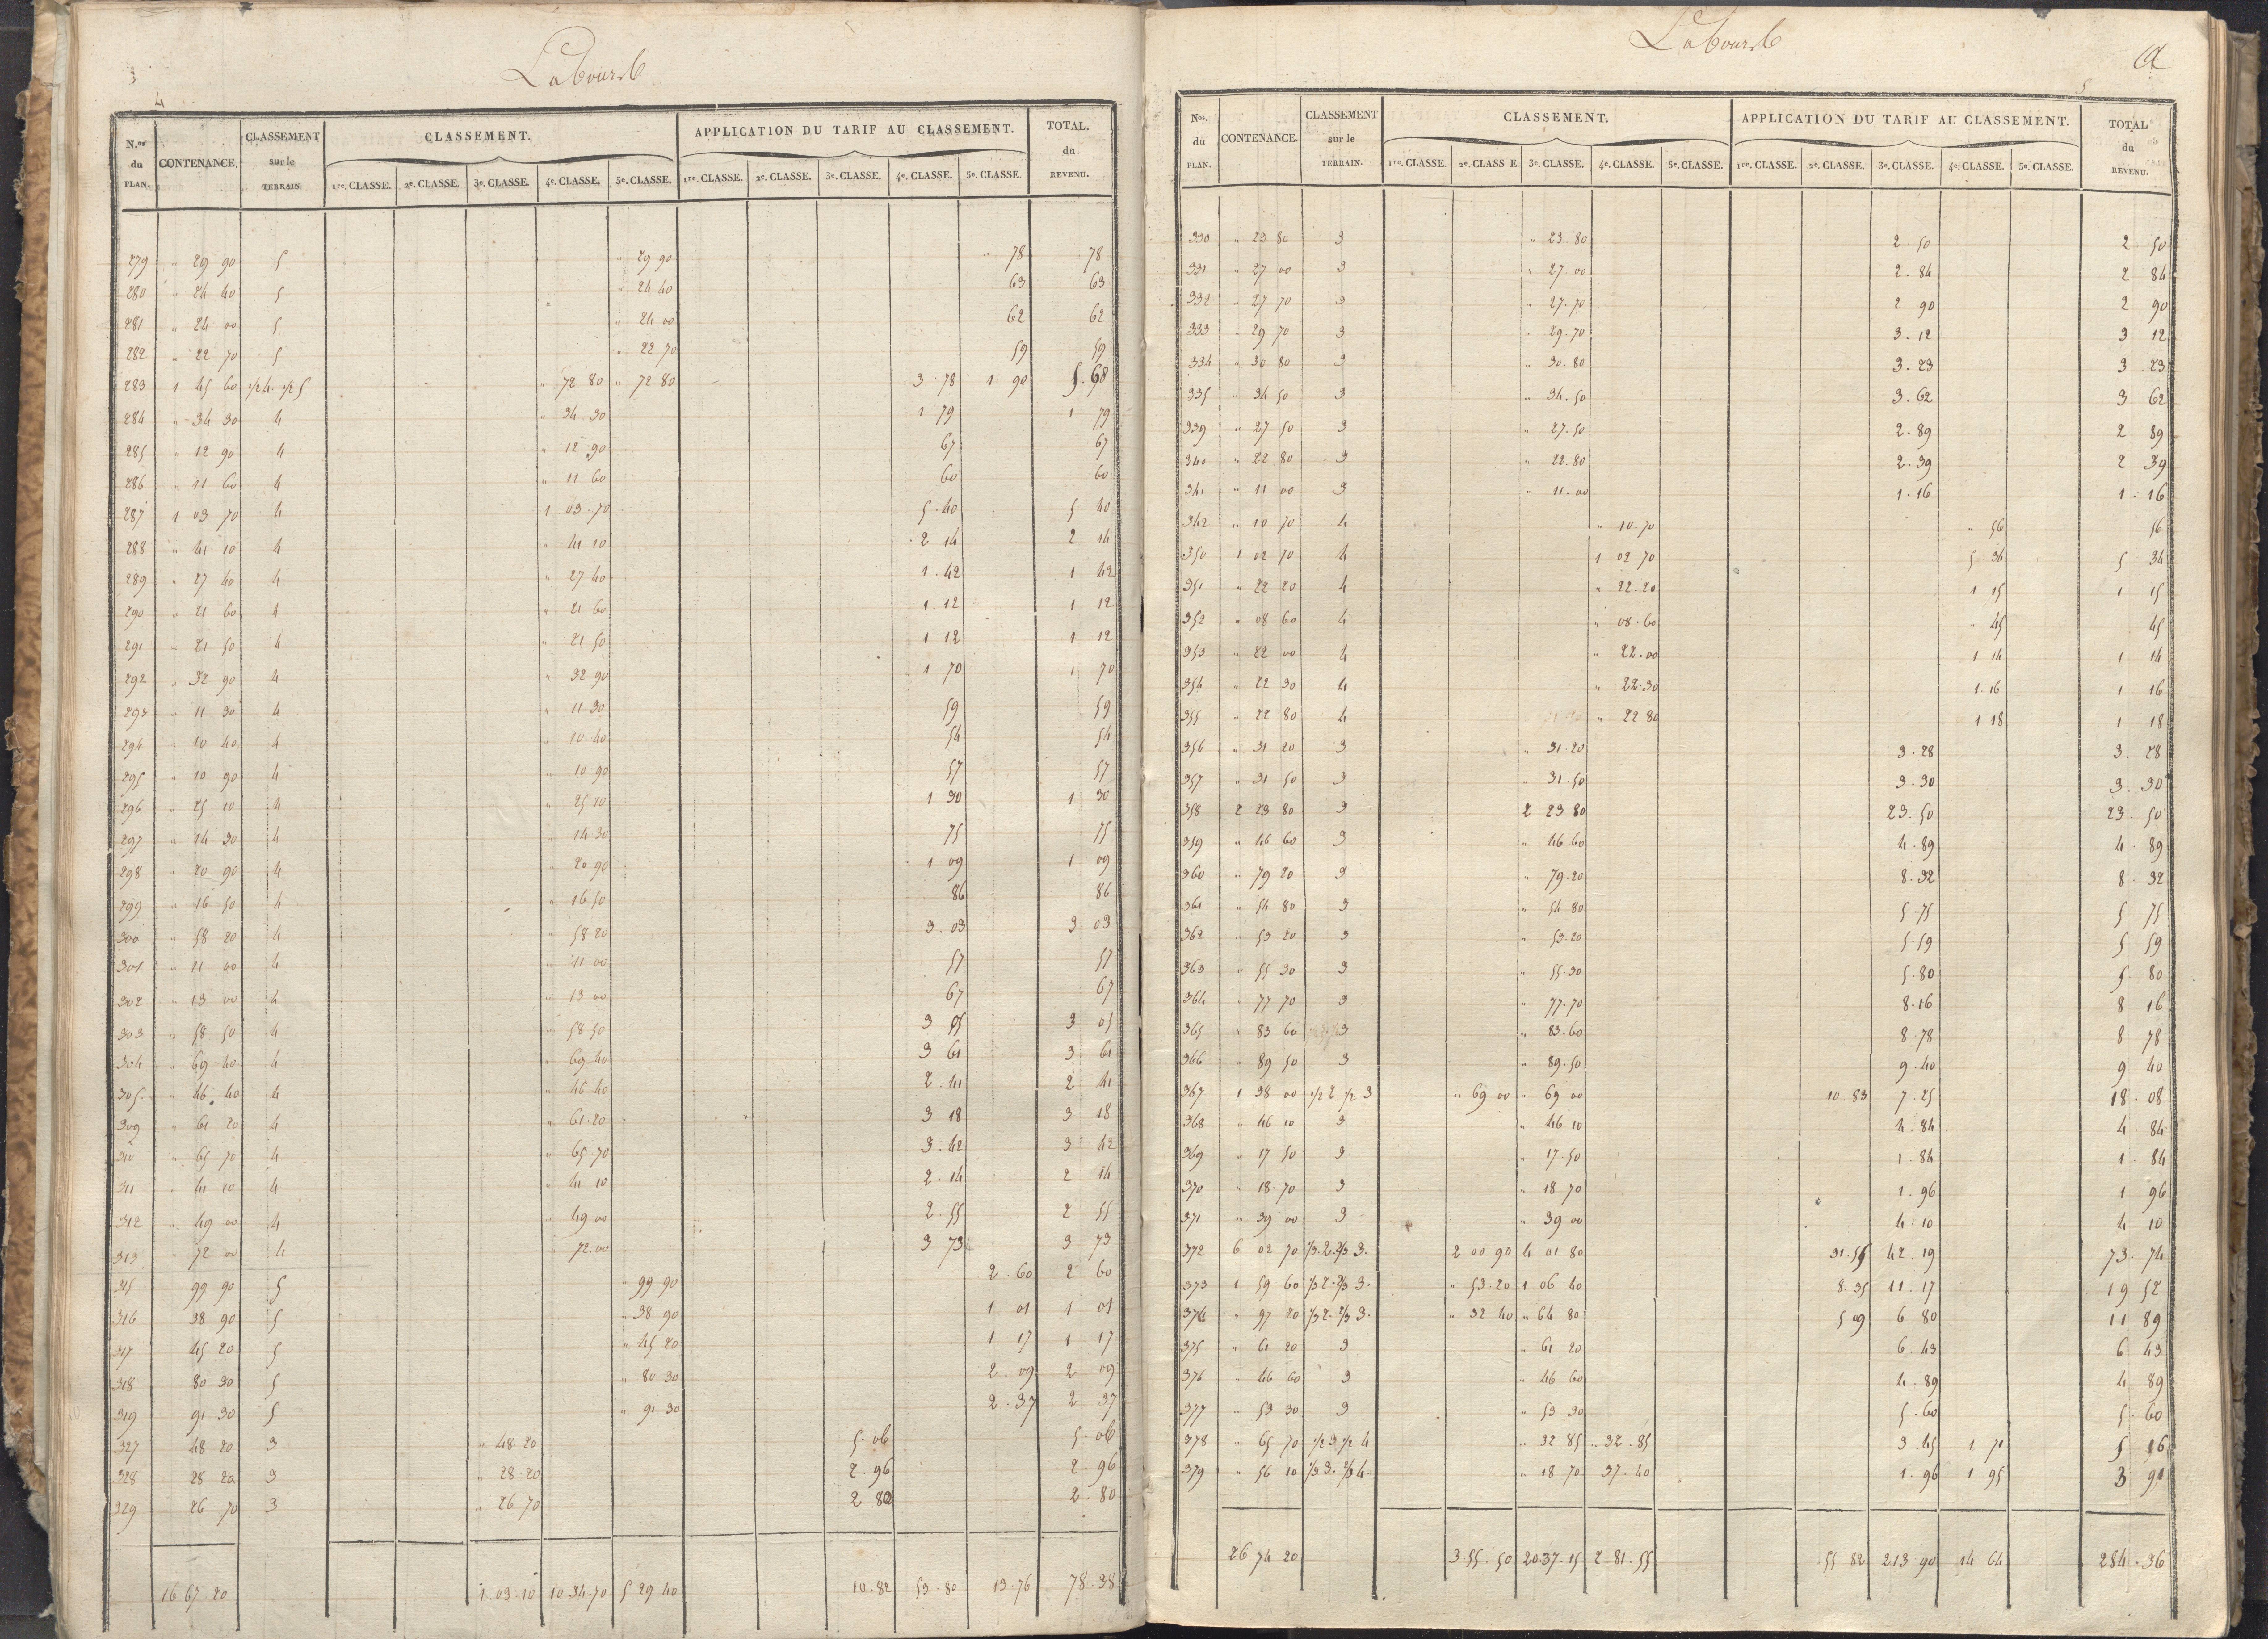 3
4
Labours
N.os du PLAN. CONTENANCE. CLASSEMENT sur le TERRAIN. CLASSEMENT. APPLICATION DU TARIF AU CLASSEMENT. TOTAL. du REVENU.
1re. CLASSE. 2e. CLASSE. 3e. CLASSE. 4e. CLASSE. 5e. CLASSE. 1re. CLASSE. 2e. CLASSE. 3e. CLASSE. 4e. CLASSE. 5e. CLASSE.
279 " 29 90 5 " 29 90 " 78 78
280 " 24 40 5 " 24 40 63 63
281 " 24 00 5 " 24 00 62 62
282 " 22 70 5 " 22 70 59 59
283 1 45 60 1/2 4. 1/2 5 " 72 80 " 72 80 3 78 1 90 5.68
284 " 34 30 4 " 34 30 1 79 1 79
285 " 12 90 4 " 12 90 67 67
286 " 11 60 4 " 11 60 60 60
287 1 03 70 4 1 03 70 5.40 5 40
288 " 41 10 4 " 41 10 2 14 2 14
289 " 27 40 4 " 27 40 1.42 1 42
290 " 21 60 4 " 21 60 1.12 1 12
291 " 21 50 4 " 21 50 1 12 1 12
292 " 32 90 4 " 32 90 1 70 1 70
293 " 11 30 4 " 11.30 59 59
294 " 10 40 4 " 10 40 54 54
295 " 10 90 4 " 10 90 57 57
296 " 25 10 4 " 25 10 1 30 1 30
297 " 14 30 4 " 14.30 75 75
298 " 20 90 4 " 20 90 1 09 1 09
299 " 16 50 4 " 16 50 86 86
300 " 58 20 4 " 58 20 3.03 3 03
301 " 11 00 4 " 11 00 57 57
302 " 13 00 4 " 13 00 67 67
303 " 58 50 4 " 58 50 3 05 3 05
304 " 69 40 4 " 69.40 3 61 3 61
305 " 46 40 4 " 46 40 2.41 2 41
309 " 61 20 4 " 61.20 3 18 3 18
310 " 65 70 4 " 65.70 3.42 3 42
311 " 41 10 4 " 41 10 2.14 2 14
312 " 49 00 4 " 49 00 2.55 2 55
313 " 72 00 4 " 72.00 3 73 3 73
315 99 90 5 " 99 90 2.60 2 60
316 38 90 5 " 38 90 1 01 1 01
317 45 20 5 " 45 20 1 17 1 17
318 80 30 5 " 80 30 2.09 2 09
319 91 30 5 " 91 30 2.37 2 37
327 48 20 3 " 48.20 5.06 5.06
328 28 20 3 " 28.20 2.96 2.96
329 26 70 3 " 26 70 2 80 2.80
16 67 20 5 03 10 10 34 70 5 29 40 10.82 53.80 13.76 78.38
Labours
5
N.os du PLAN. CONTENANCE. CLASSEMENT sur le TERRAIN. CLASSEMENT. APPLICATION DU TARIF AU CLASSEMENT. TOTAL du REVENU.
1re. CLASSE. 2e. CLASS E. 3e. CLASSE. 4e. CLASSE. 5e. CLASSE. 1re. CLASSE. 2e. CLASSE. 3e. CLASSE. 4e. CLASSE. 5e. CLASSE.
330 " 23 80 3 " 23.80 2.50 2 50
331 " 27 00 3 " 27.00 2.84 2 84
332 " 27 70 3 " 27.70 2 90 2 90
333 " 29 70 3 " 29.70 3.12 3 12
334 " 30 80 3 " 30.80 3.23 3.23
335 " 34 50 3 " 34.50 3.62 3 62
339 " 27 50 3 " 27.50 2.89 2 89
340 " 22 80 3 " 22.80 2.39 2 39
341 " 11 00 3 " 11.00 1.16 1.16
342 " 10 70 4 " 10.70 " 56 56
350 1 02 70 4 1 02 70 5.34 5 34
351 " 22 20 4 " 22.20 1 15 1 15
352 " 08 60 4 " 08.60 " 45 45
353 " 22 00 4 " 22.00 1 14 1 14
354 " 22 30 4 " 22.30 1.16 1 16
355 " 22 80 4 " 22 80 1 18 1 18
356 " 31 20 3 " 31.20 3.28 3.28
357 " 31 50 3 " 31.50 3.30 3.30
358 2 23 80 3 2 23 80 23.50 23.50
359 " 46 60 3 " 46.60 4.89 4.89
360 " 79 20 3 " 79.20 8.32 8.32
361 " 54 80 3 " 54 80 5.75 5 75
362 " 53 20 3 " 53.20 5.59 5 59
363 " 55 30 3 " 55.30 5.80 5.80
364 " 77 70 3 " 77.70 8.16 8 16
365 " 83 60 3 " 83.60 8.78 8 78
366 " 89 50 3 " 89.50 9.40 9 40
367 1 38 00 1/2 2 1/2 3 " 69 00 " 69 00 10.83 7.25 18.08
368 " 46 10 3 " 46 10 4.84 4.84
369 " 17 50 3 " 17.50 1.84 1.84
370 " 18.70 3 " 18 70 1.96 1 96
371 " 39 00 3 " 39 00 4.10 4 10
372 6 02 70 1/3.2.2/3 3. 2 00 90 4 01 80 31.55 42.19 73.74
373 1 59 60 1/3 2.2/3 3. " 53.20 1 06 40 8.35 11.17 19 52
374 " 97 20 1/3 2.2/3 3. " 32 40 " 64 80 5 09 6 80 11 89
375 " 61 20 3 " 61 20 6.43 6 43
376 " 46 60 3 " 46 60 4.89 4 89
377 " 53 30 3 " 53 30 5.60 5.60
378 " 65 70 1/2 3 1/2 4 " 32 85 " 32.85 3.45 1 71 5 16
379 " 56 10 1/3 3. 2/3 4. " 18 70 37.40 1.96 1 95 3 91
26 74 20 3.55.50 20.37.15 2 81.55 55 82 213.90 14 64 284.36